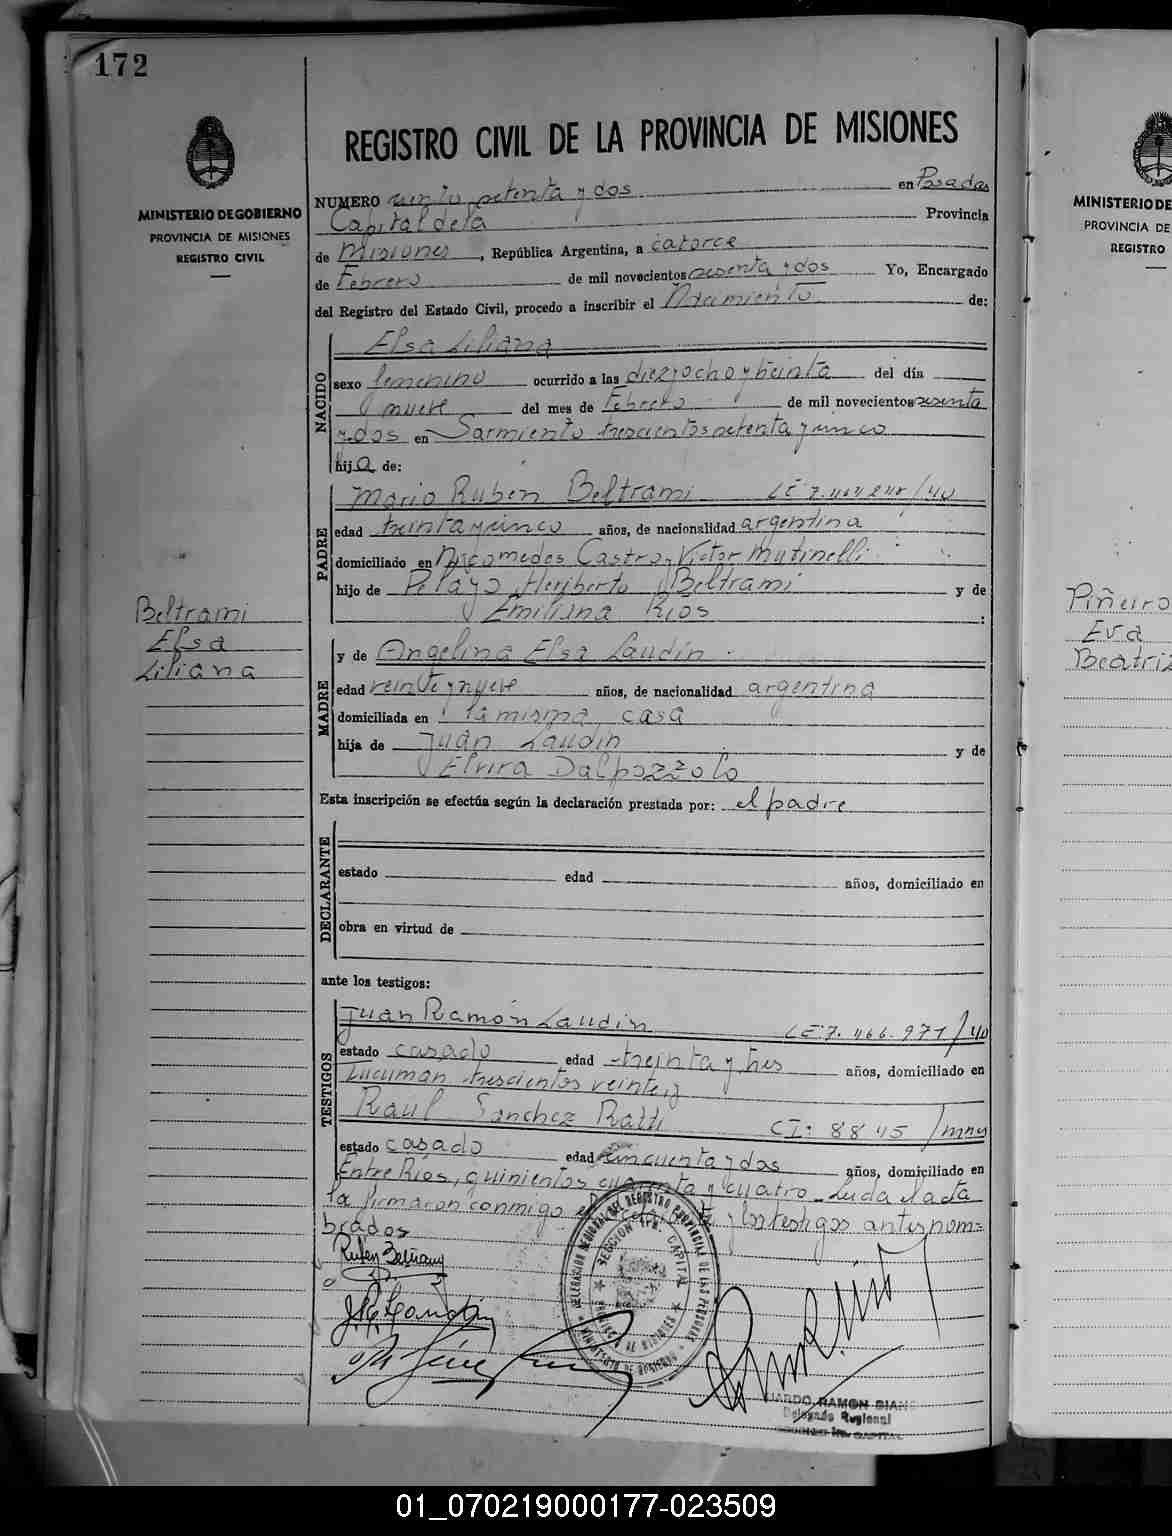 172
MINISTERIO DE GOBIERNO
PROVINCIA DE MISIONES
REGISTRO CIVIL
Beltrami
Elsa
Liliana
REGISTRO CIVIL DE LA PROVINCIA DE MISIONES
NUMERO ciento setenta y dos en Posadas
Capital de la Provincia
de Misiones, República Argentina, a catorce
de Febrero de mil novecientos sesenta y dos Yo, Encargado
del Registro del Estado Civil, procedo a inscribir el Nacimiento de:
NACIDO
Elsa Liliana
sexo femenino ocurrido a las diez y ocho y treinta del día
nueve del mes de Febrero de mil novecientos sesenta
y dos en Sarmiento trescientos setenta y cinco
hija de:
PADRE
Mario Ruben Beltrami LE 7. /40
edad treinta y cinco años, de nacionalidad argentina
domiciliado en Nicomedes Castro y Victor Mutinelli
hijo de Pelayo Heriberto Beltrami y de
Emiliana Rios :
MADRE
y de Angelina Elsa Laudin
edad veinte y nueve años, de nacionalidad argentina
domiciliada en la misma casa
hija de Juan Laudin y de
Elvira Dalpozzolo
Esta inscripción se efectúa según la declaración prestada por: el padre
DECLARANTE
estado edad años, domiciliado en
obra en virtud de
ante los testigos:
TESTIGOS
Juan Ramón Laudin LE 7.466.971/40
estado casado edad treinta y tres años, domiciliado en
Tucuman trescientos veinte y
Raul Sanchez Ratti CI: 8845/mns
estado casado edad cincuenta y dos años, domiciliado en
Entre Rios, quinientos cuarenta y cuatro Leida el acta
la firmaron conmigo y los testigos antes nom=
brados
Ruben Beltrami
DELEGACION REGIONAL DEL REGISTRO PROVINCIAL DE LAS PERSONAS
MINISTERIO DE GOBIERNO
SECCION 1ra. CAPITAL
PROVINCIA DE MISIONES
RAMON
Delegado Regional
CAPITAL
MINISTERIO DE
PROVINCIA DE
REGISTRO
Piñeiro
Eva
Beatriz
01_070219000177-023509